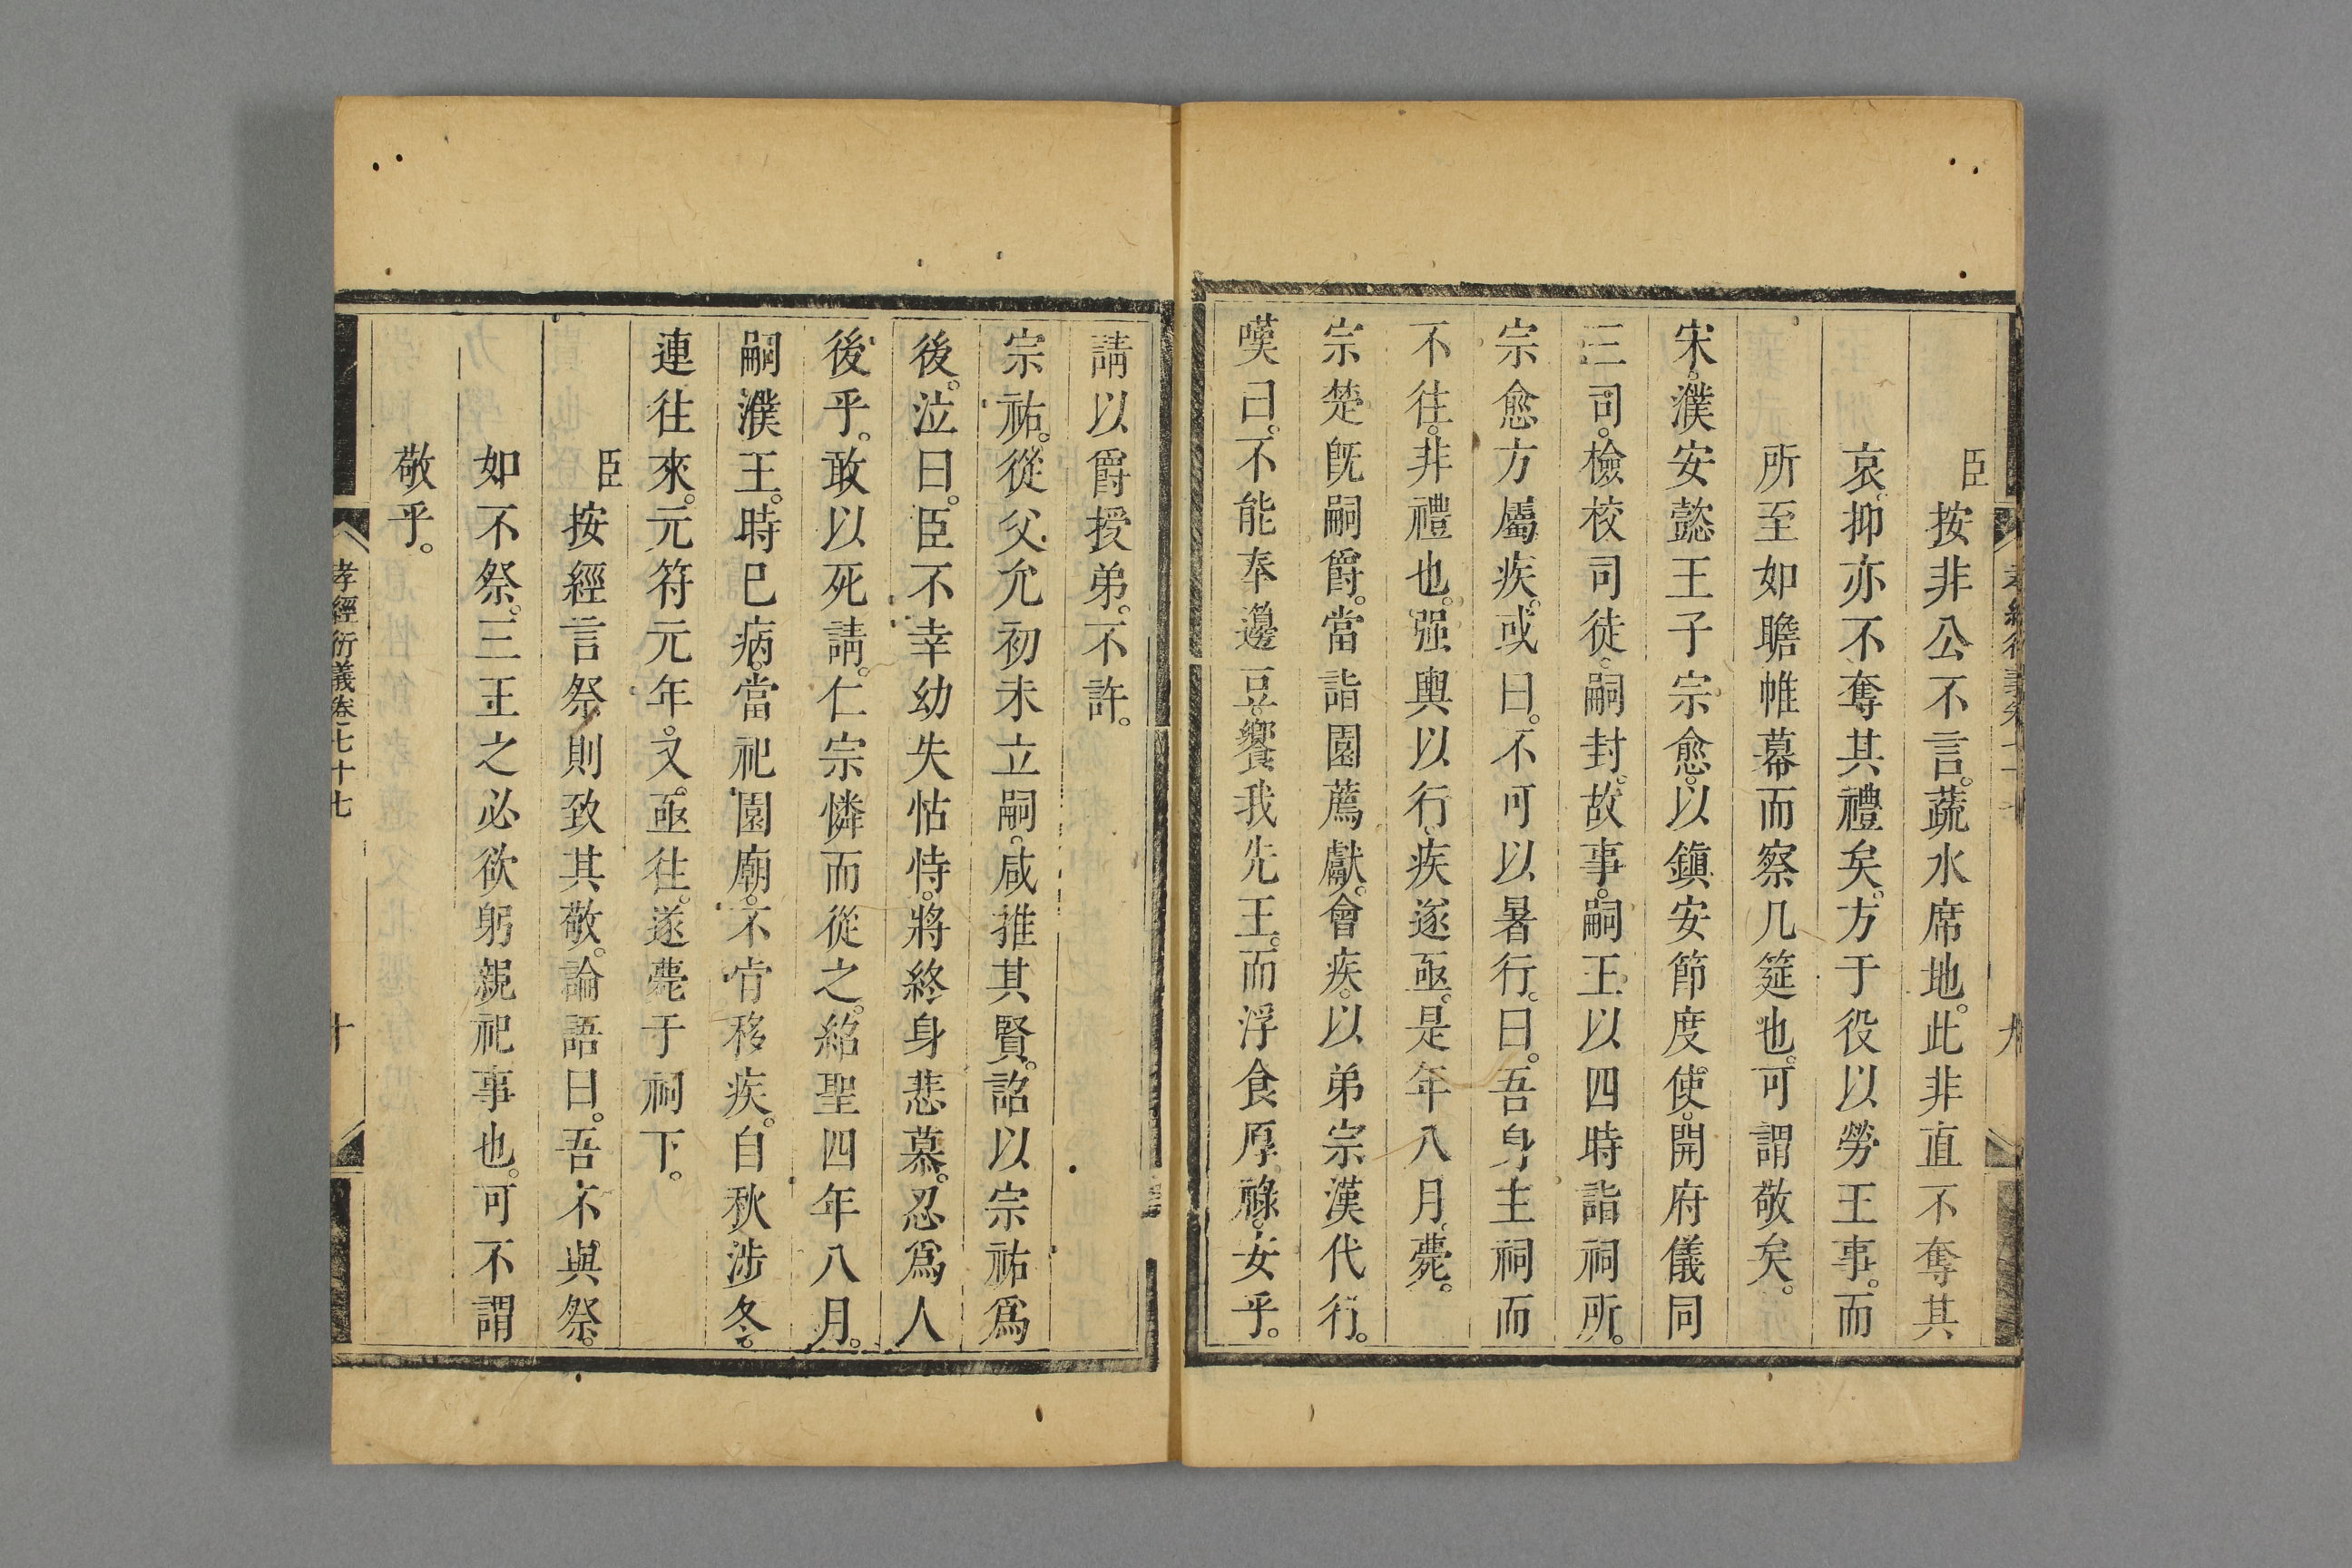 臣按非公不言。蔬水席地。此非直不奪其
哀。抑亦不奪其禮矣。方于役以勞王事。而
所至如瞻帷幕而察几筵也。可謂敬矣。
宋。濮安懿王子宗愈。以鎮安節度使。開府儀同
三司。檢校司徒。嗣封。故事。嗣王以四時詣祠所。
宗愈方屬疾。或曰。不可以暑行。曰。吾身主祠而
不往。非禮也。强輿以行。疾遂亟。是年八月。薨。
宗楚旣嗣爵。當詣園薦獻。會疾。以弟宗漢代行。
嘆曰。不能奉邊豆。饗我先王。而浮食厚祿。安乎。
請以爵授弟。不許。
宗祐。從父允初未立嗣。咸推其賢。詔以宗祐爲
後。泣曰。臣不幸幼失怙恃。將終身悲慕。忍爲人
後乎。敢以死請。仁宗憐而從之。紹聖四年八月。
嗣濮王。時已病。當祀園廟。不肯移疾。自秋涉冬。
連往來。元符元年。又亟往。遂薨于祠下。
臣按經言祭則致其敬。論語曰。吾不與祭。
如不祭。三王之必欲躬親祀事也。可不謂
敬乎。
孝經衍義卷七十七
十
九